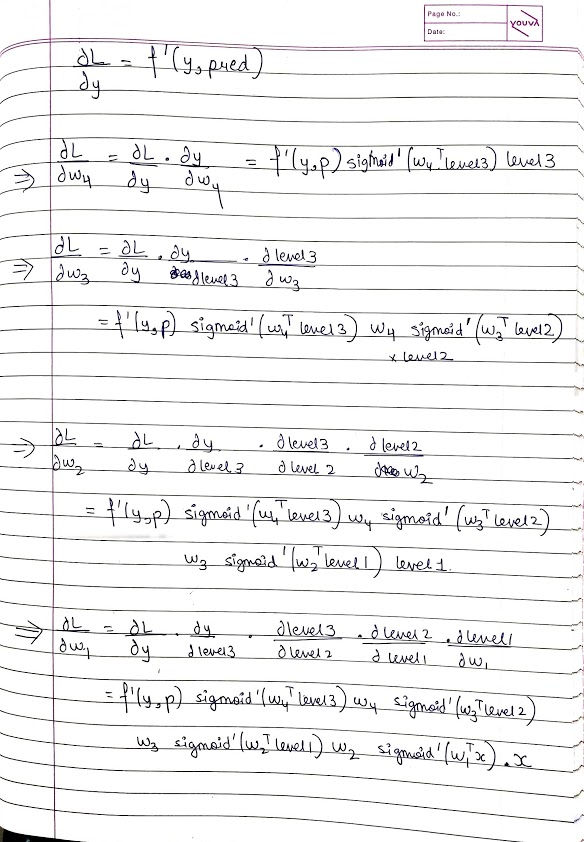 Page No.:
Date:
YOUVA
∂L/∂y = f'(y, pred)
⇒ ∂L/∂w₄ = ∂L/∂y · ∂y/∂w₄ = f'(y,p) sigmoid'(w₄ᵀ level3) level3
⇒ ∂L/∂w₃ = ∂L/∂y · ∂y/∂level3 · ∂level3/∂w₃
= f'(y,p) sigmoid'(w₄ᵀ level3) w₄ sigmoid'(w₃ᵀ level2)
× level2
⇒ ∂L/∂w₂ = ∂L/∂y · ∂y/∂level3 · ∂level3/∂level2 · ∂level2/∂w₂
= f'(y,p) sigmoid'(w₄ᵀ level3) w₄ sigmoid'(w₃ᵀ level2)
w₃ sigmoid'(w₂ᵀ level1) level1.
⇒ ∂L/∂w₁ = ∂L/∂y · ∂y/∂level3 · ∂level3/∂level2 · ∂level2/∂level1 · ∂level1/∂w₁
= f'(y,p) sigmoid'(w₄ᵀ level3) w₄ sigmoid'(w₃ᵀ level2)
w₃ sigmoid'(w₂ᵀ level1) w₂ sigmoid'(w₁ᵀx) . x